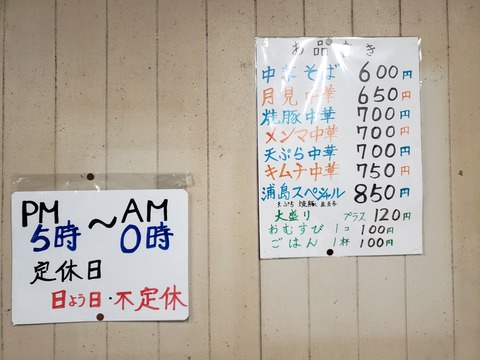 お品書き
中華そば 600円
月見中華 650円
焼豚中華 700円
メンマ中華 700円
天ぷら中華 700円
キムチ中華 750円
浦島スペシャル 850円
天ぷら 焼豚 玉子
大盛り プラス 120円
おむすび 1コ 100円
ごはん 1杯 100円
PM 5時 〜 AM 0時
定休日
日よう日・不定休